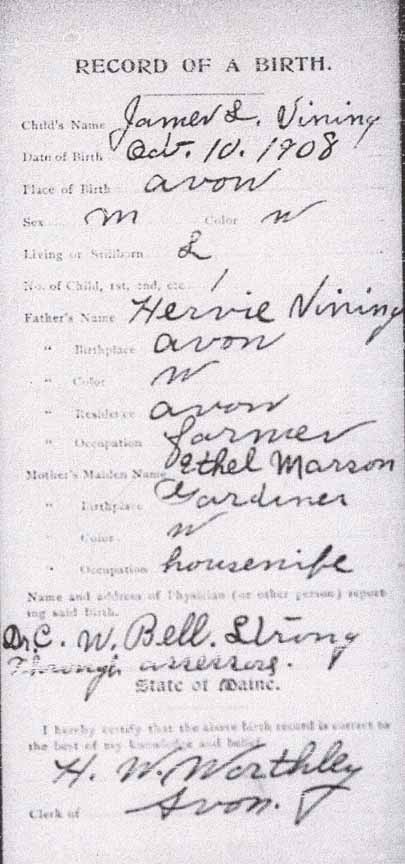 RECORD OF A BIRTH.
Child's Name James L. Vining
Date of Birth Oct. 10. 1908
Place of Birth avon
Sex m Color W
Living or Stillborn L
No. of Child, 1st, 2nd, etc. 1
Father's Name Hervie Vining
" Birthplace avon
" Color W
" Residence avon
" Occupation farmer
Mother's Maiden Name Ethel Marson
" Birthplace Gardiner
" Color W
" Occupation housewife
Name and address of Physician (or other person) report-
ing said birth.
Dr. C. W. Bell. Strong
Through assessors.
State of Maine.
I hereby certify that the above birth record is correct to
the best of my knowledge and belief.
H. W. Worthley
Clerk of Avon.